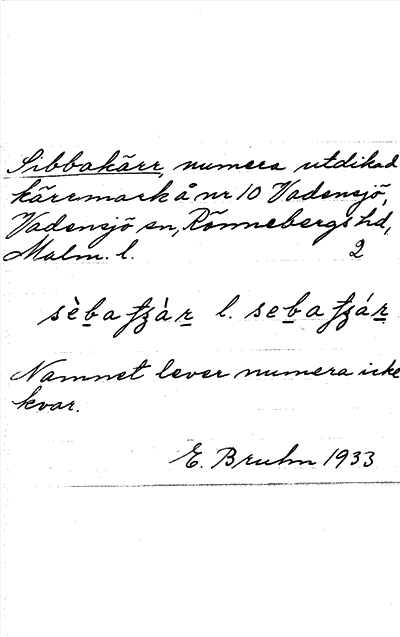 Sibbakärr, numera utdikad
kärrmark å nr 10 Vadensjö,
Vadensjö sn, Rönnebergs hd,
Malm. l. 2
l.
Namnet lever numera icke
kvar.
E. Bruhn 1933